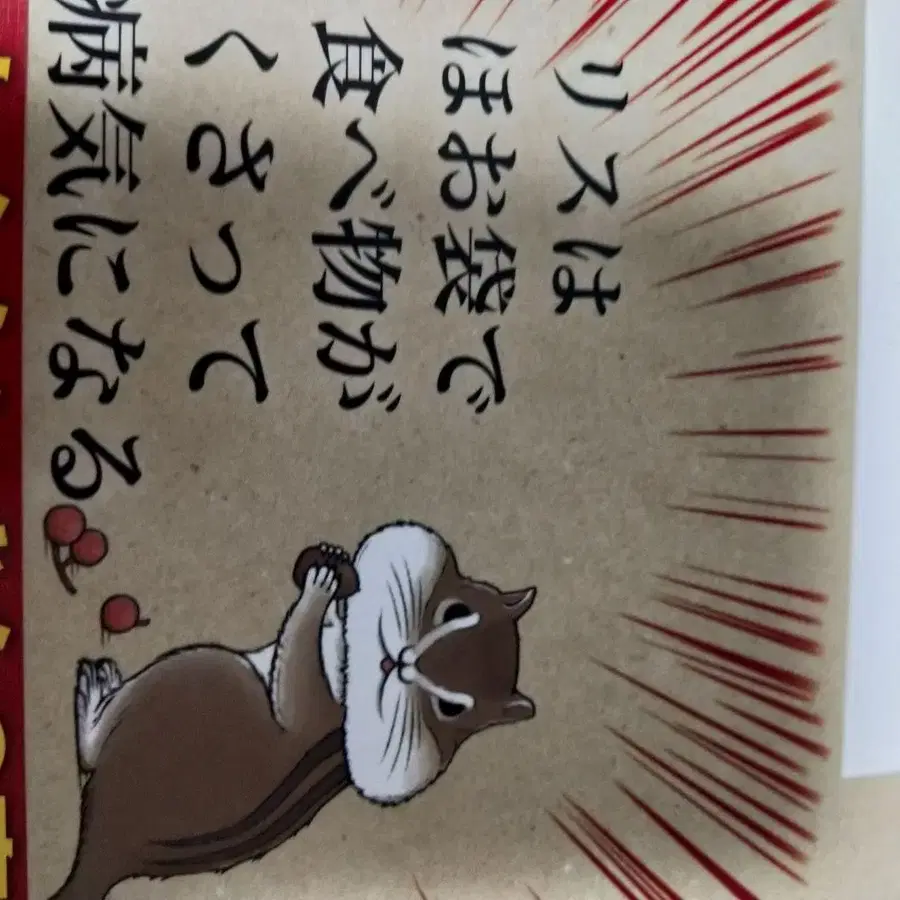 リスは
ほお袋で
食べ物が
くさって
病気になる